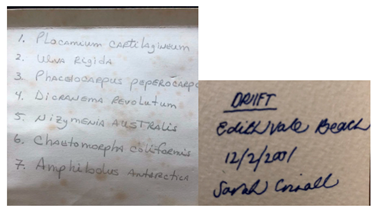 1. Plocamium cartilagineum
2. Ulva rigida
3. Phacelocarpus peperocarpo
4. Dicranema revolutum
5. Nizymenia australis
6. Chaetomorpha coliformis
7. Amphibolus antarctica
DRIFT
Edith Vale Beach
12/2/2001
Sarah